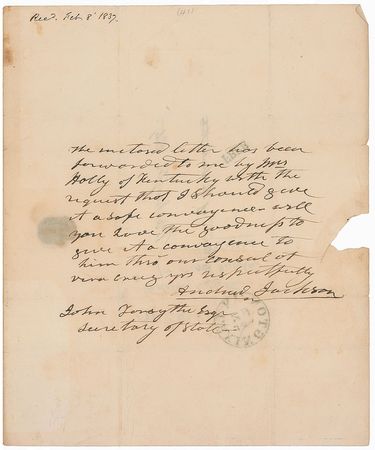 Recd. Feb 8 1837.
(41)
The inclosed letter has been
forwarded to me by Mrs
Holly of Kentucky with the
request that I should give
it a safe conveyance will
you have the goodness to
give it a conveyance to
him thro our consul at
vera cruz yrs respectfully
Andrew Jackson
John Forsythe Esqr
Secretary of State